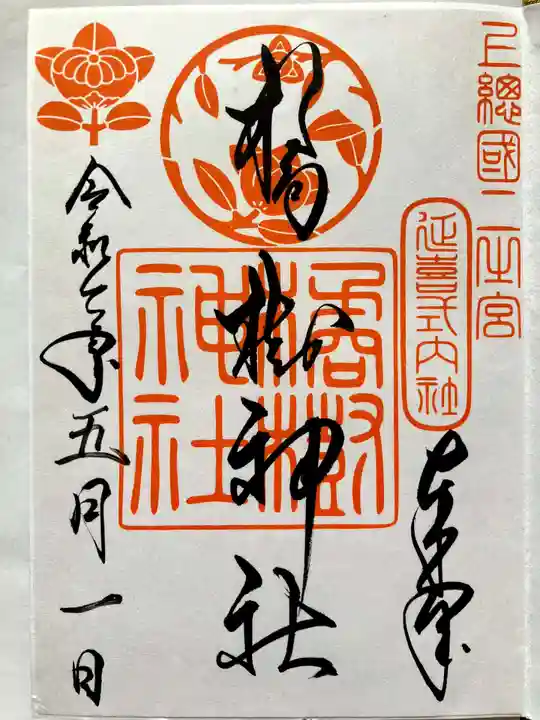 上總國二之宮
延喜式内社
奉拝
橘樹神社
橘樹神社
令和元年五月一日